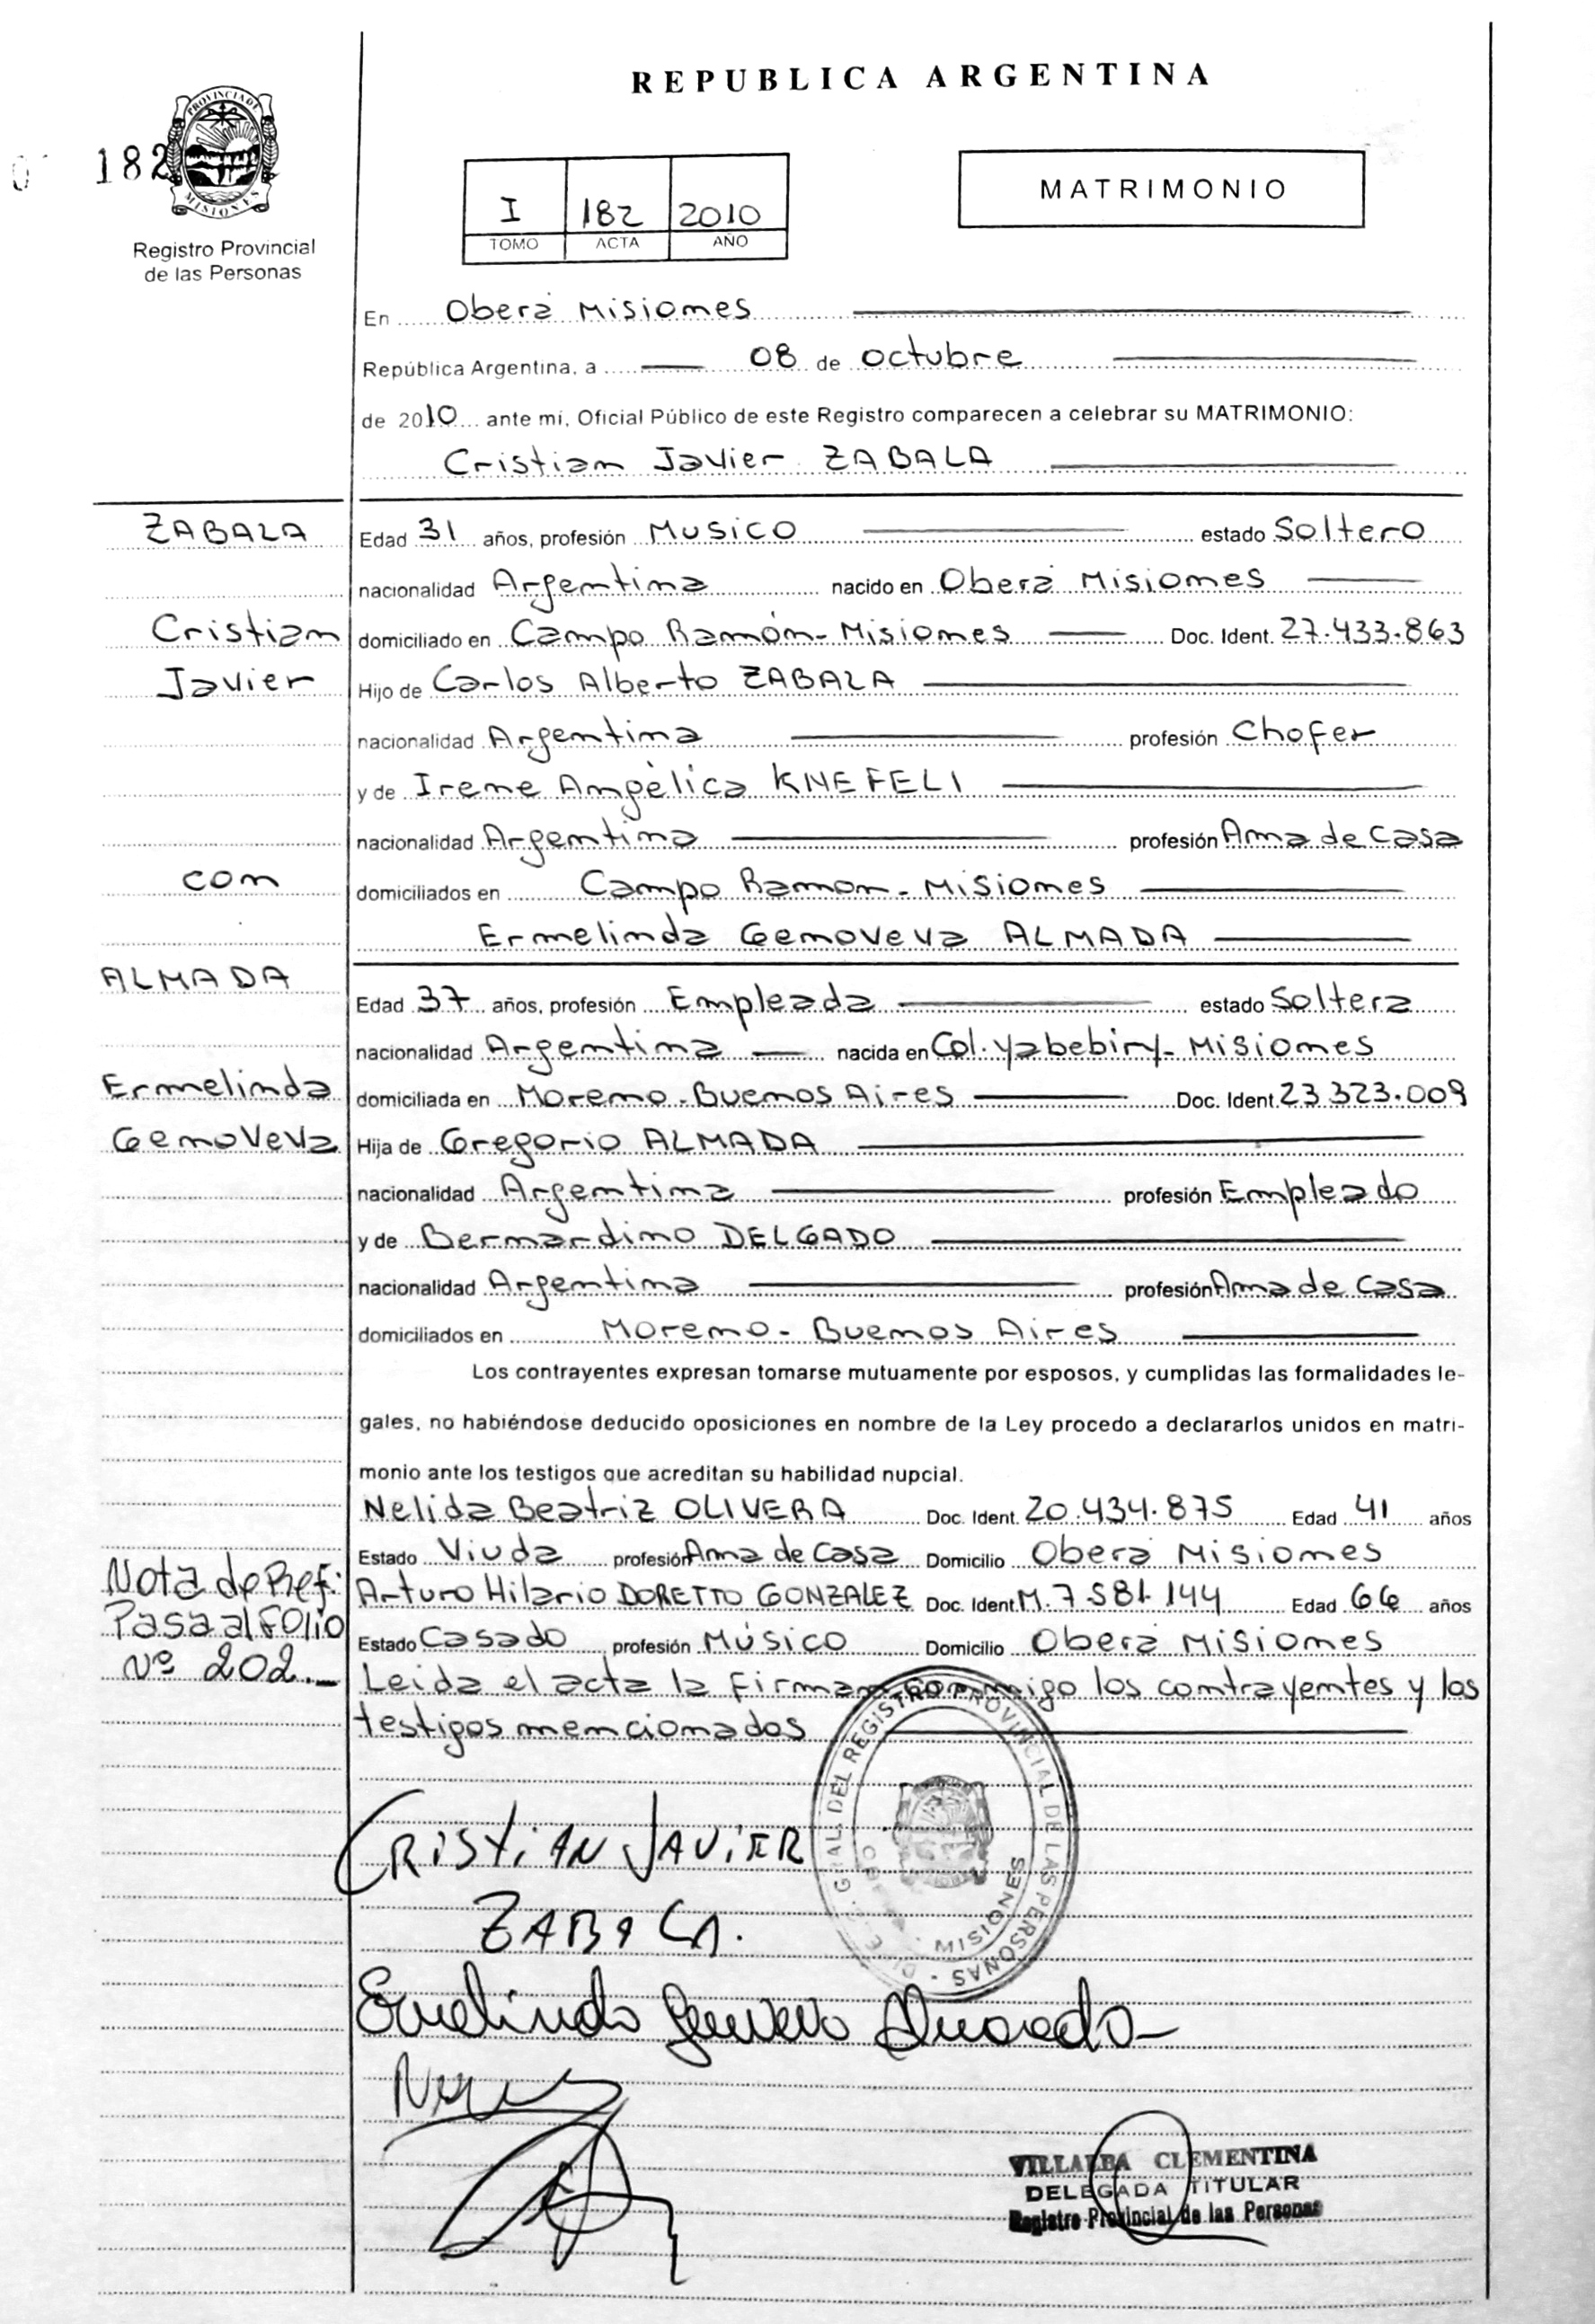 REPUBLICA ARGENTINA
182
PROVINCIA DE
MISIONES
Registro Provincial
de las Personas
I 182 2010
TOMO ACTA AÑO
MATRIMONIO
En Oberá Misiones
República Argentina, a 08 de octubre
de 2010 ante mí, Oficial Público de este Registro comparecen a celebrar su MATRIMONIO:
Cristian Javier ZABALA
ZABALA
Edad 31 años, profesión Musico estado Soltero
nacionalidad Argentina nacido en Oberá Misiones
Cristian
domiciliado en Campo Ramón - Misiones Doc. Ident. 27.433.863
Javier
Hijo de Carlos Alberto ZABALA
nacionalidad Argentina profesión Chofer
y de Irene Angélica KNEFELI
nacionalidad Argentina profesión Ama de Casa
con
domiciliados en Campo Ramon - Misiones
Ermelinda Genoveva ALMADA
ALMADA
Edad 37 años, profesión Empleada estado Soltera
nacionalidad Argentina nacida en Col. Yabebiry - Misiones
Ermelinda
domiciliada en Moreno - Buenos Aires Doc. Ident. 23.323.009
Genoveva
Hija de Gregorio ALMADA
nacionalidad Argentina profesión Empleado
y de Bernardino DELGADO
nacionalidad Argentina profesión Ama de Casa
domiciliados en Moreno - Buenos Aires
Los contrayentes expresan tomarse mutuamente por esposos, y cumplidas las formalidades le-
gales, no habiéndose deducido oposiciones en nombre de la Ley procedo a declararlos unidos en matri-
monio ante los testigos que acreditan su habilidad nupcial.
Nelida Beatriz OLIVERA Doc. Ident. 20.434.875 Edad 41 años
Estado Viuda profesión Ama de Casa Domicilio Oberá Misiones
Nota de Ref:
Pasa al Folio
Nº 202.-
Arturo Hilario DORETTO GONZALEZ Doc. Ident. M. 7.581.144 Edad 66 años
Estado Casado profesión Músico Domicilio Oberá Misiones
Leida el acta la firman conmigo los contrayentes y los
testigos mencionados
GRAL. DEL REGISTRO PROVINCIAL DE LAS PERSONAS
MISIONES
CRISTIAN JAVIER
ZABALA.
Ermelinda Genoveva Almada
VILLALBA CLEMENTINA
DELEGADA TITULAR
Registro Provincial de las Personas